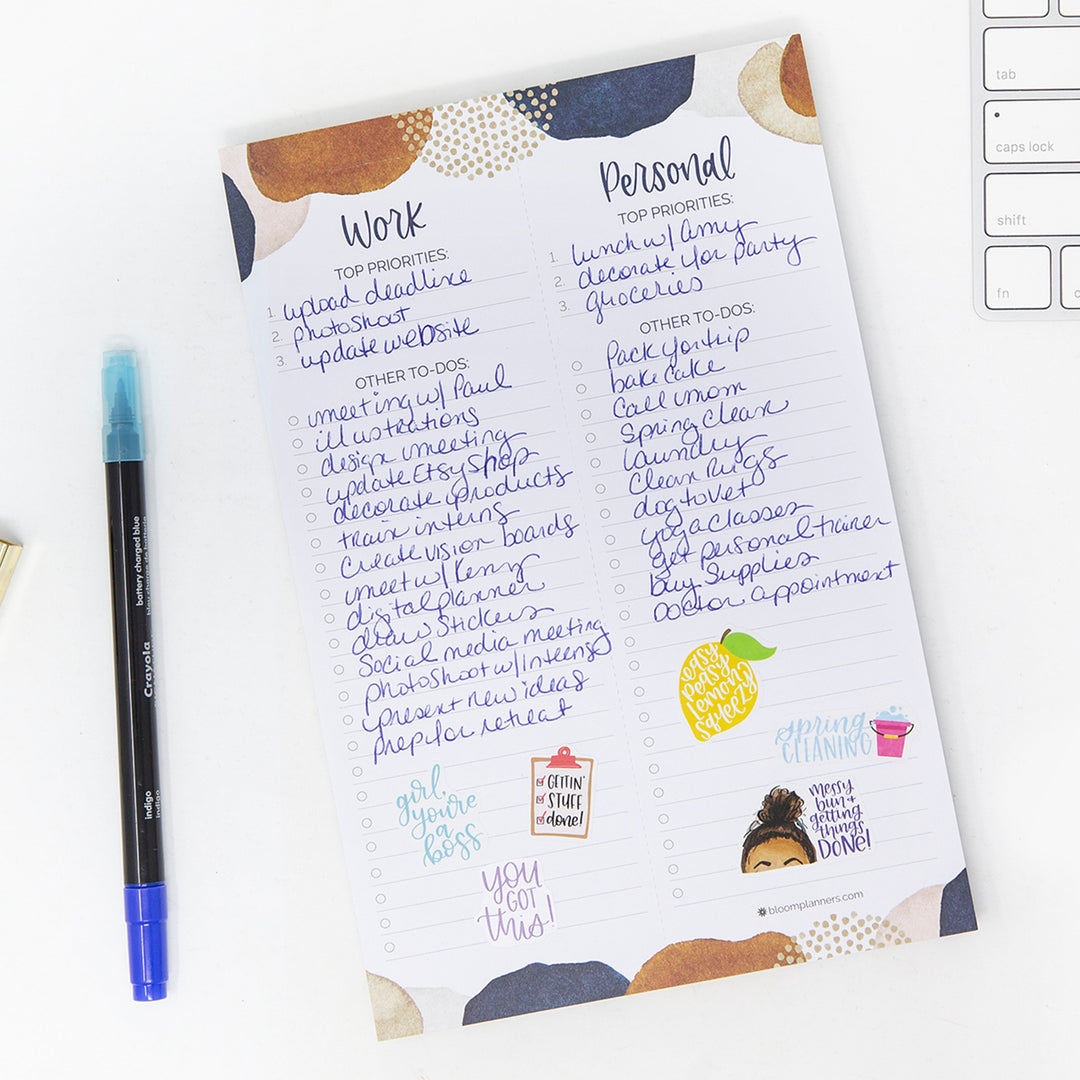 Work
TOP PRIORITIES:
1. upload deadline
2. photoshoot
3. update website
OTHER TO-DOS:
meeting w/ Paul
illustrations
design meeting
update Etsy Shop
decorate products
train interns
create vision boards
meet w/ Kenny
digital planner
draw Stickers
Social media meeting
photoshoot w/ Interns
present new ideas
prep for retreat
girl,
you're
a
boss
GETTIN'
STUFF
done!
YOU
GOT
this!
Personal
TOP PRIORITIES:
1. lunch w/ Amy
2. decorate for party
3. groceries
OTHER TO-DOS:
Pack for trip
bake cake
Call mom
Spring Clean
laundry
Clean Rugs
dog to Vet
yoga classes
get personal trainer
buy Supplies
Doctor appointment
easy
peasy
lemon
squeezy
spring
CLEANING
messy
bun +
getting
things
DONE!
bloomplanners.com
battery charged blue
Crayola
indigo
indigo
tab
caps lock
shift
fn